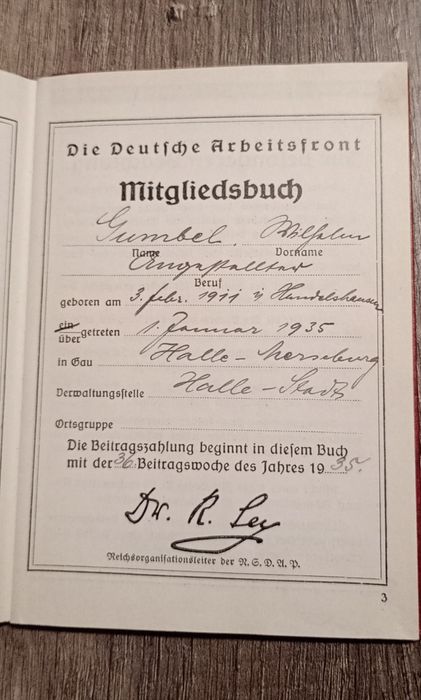 Die Deutsche Arbeitsfront
Mitgliedsbuch
Gumbel, Wilhelm
Name Vorname
Angestellter
Beruf
geboren am 3. Febr. 1911 in
ein
über getreten 1. Januar 1935
in Gau Halle-Merseburg
Verwaltungsstelle Halle-Stadt
Ortsgruppe
Die Beitragszahlung beginnt in diesem Buch
mit der 36. Beitragswoche des Jahres 1935.
Dr. R. Ley
Reichsorganisationsleiter der N.S.D.A.P.
3